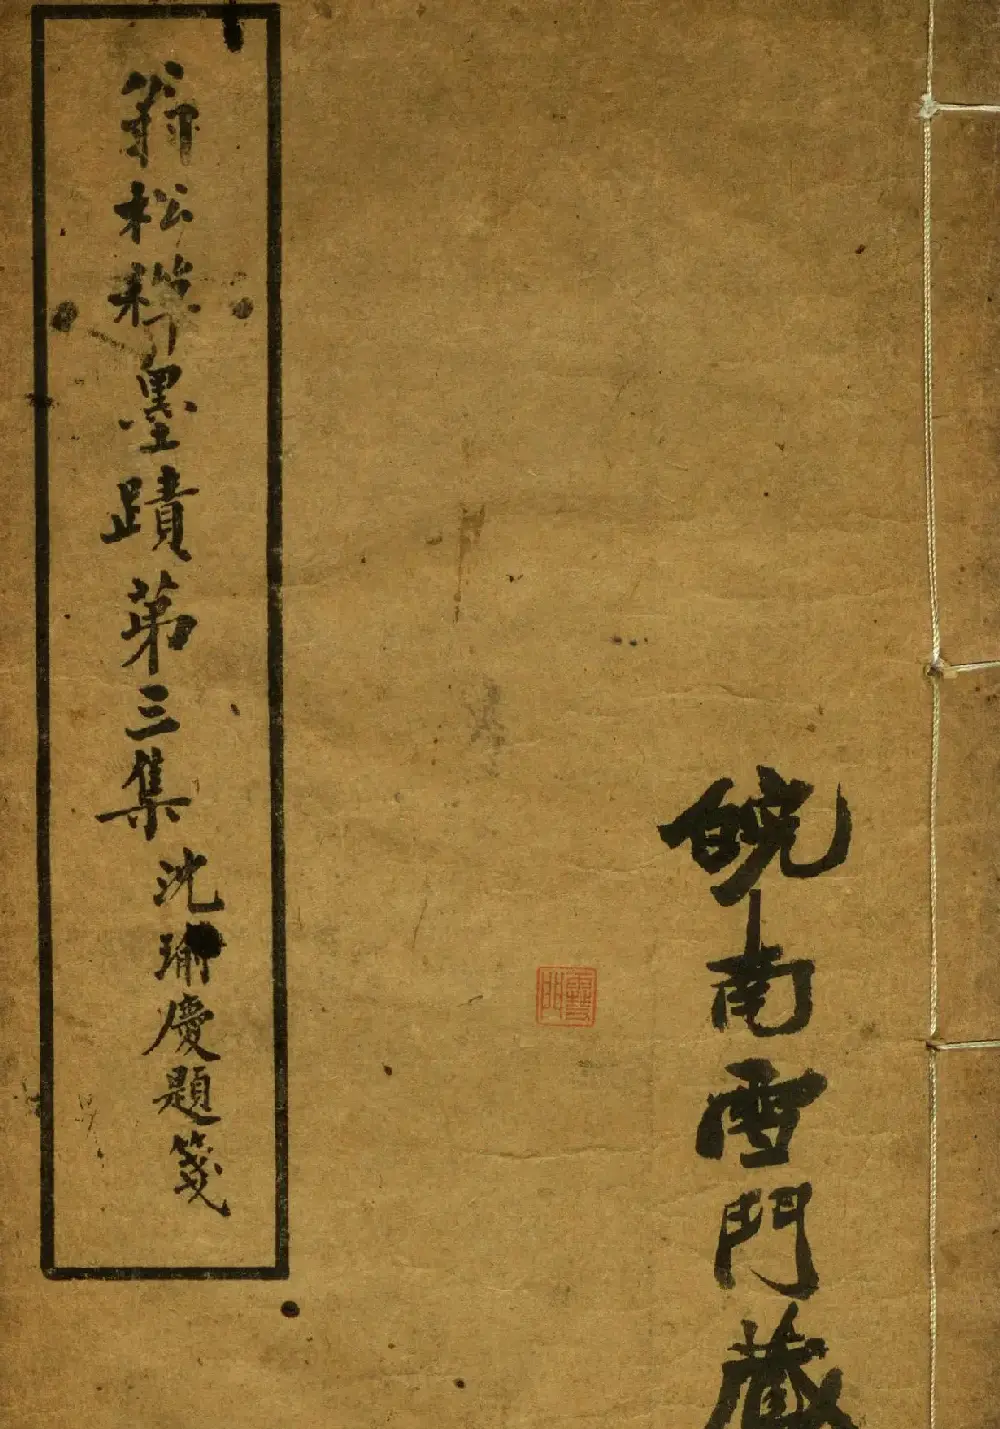 皖南雪門藏
翁松禪墨蹟第三集
沈瑜慶題箋